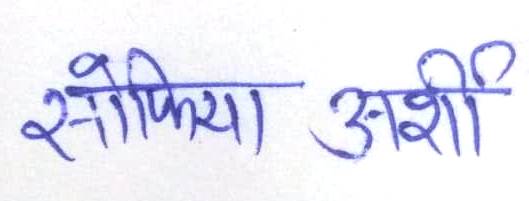 सोफिया अर्शी